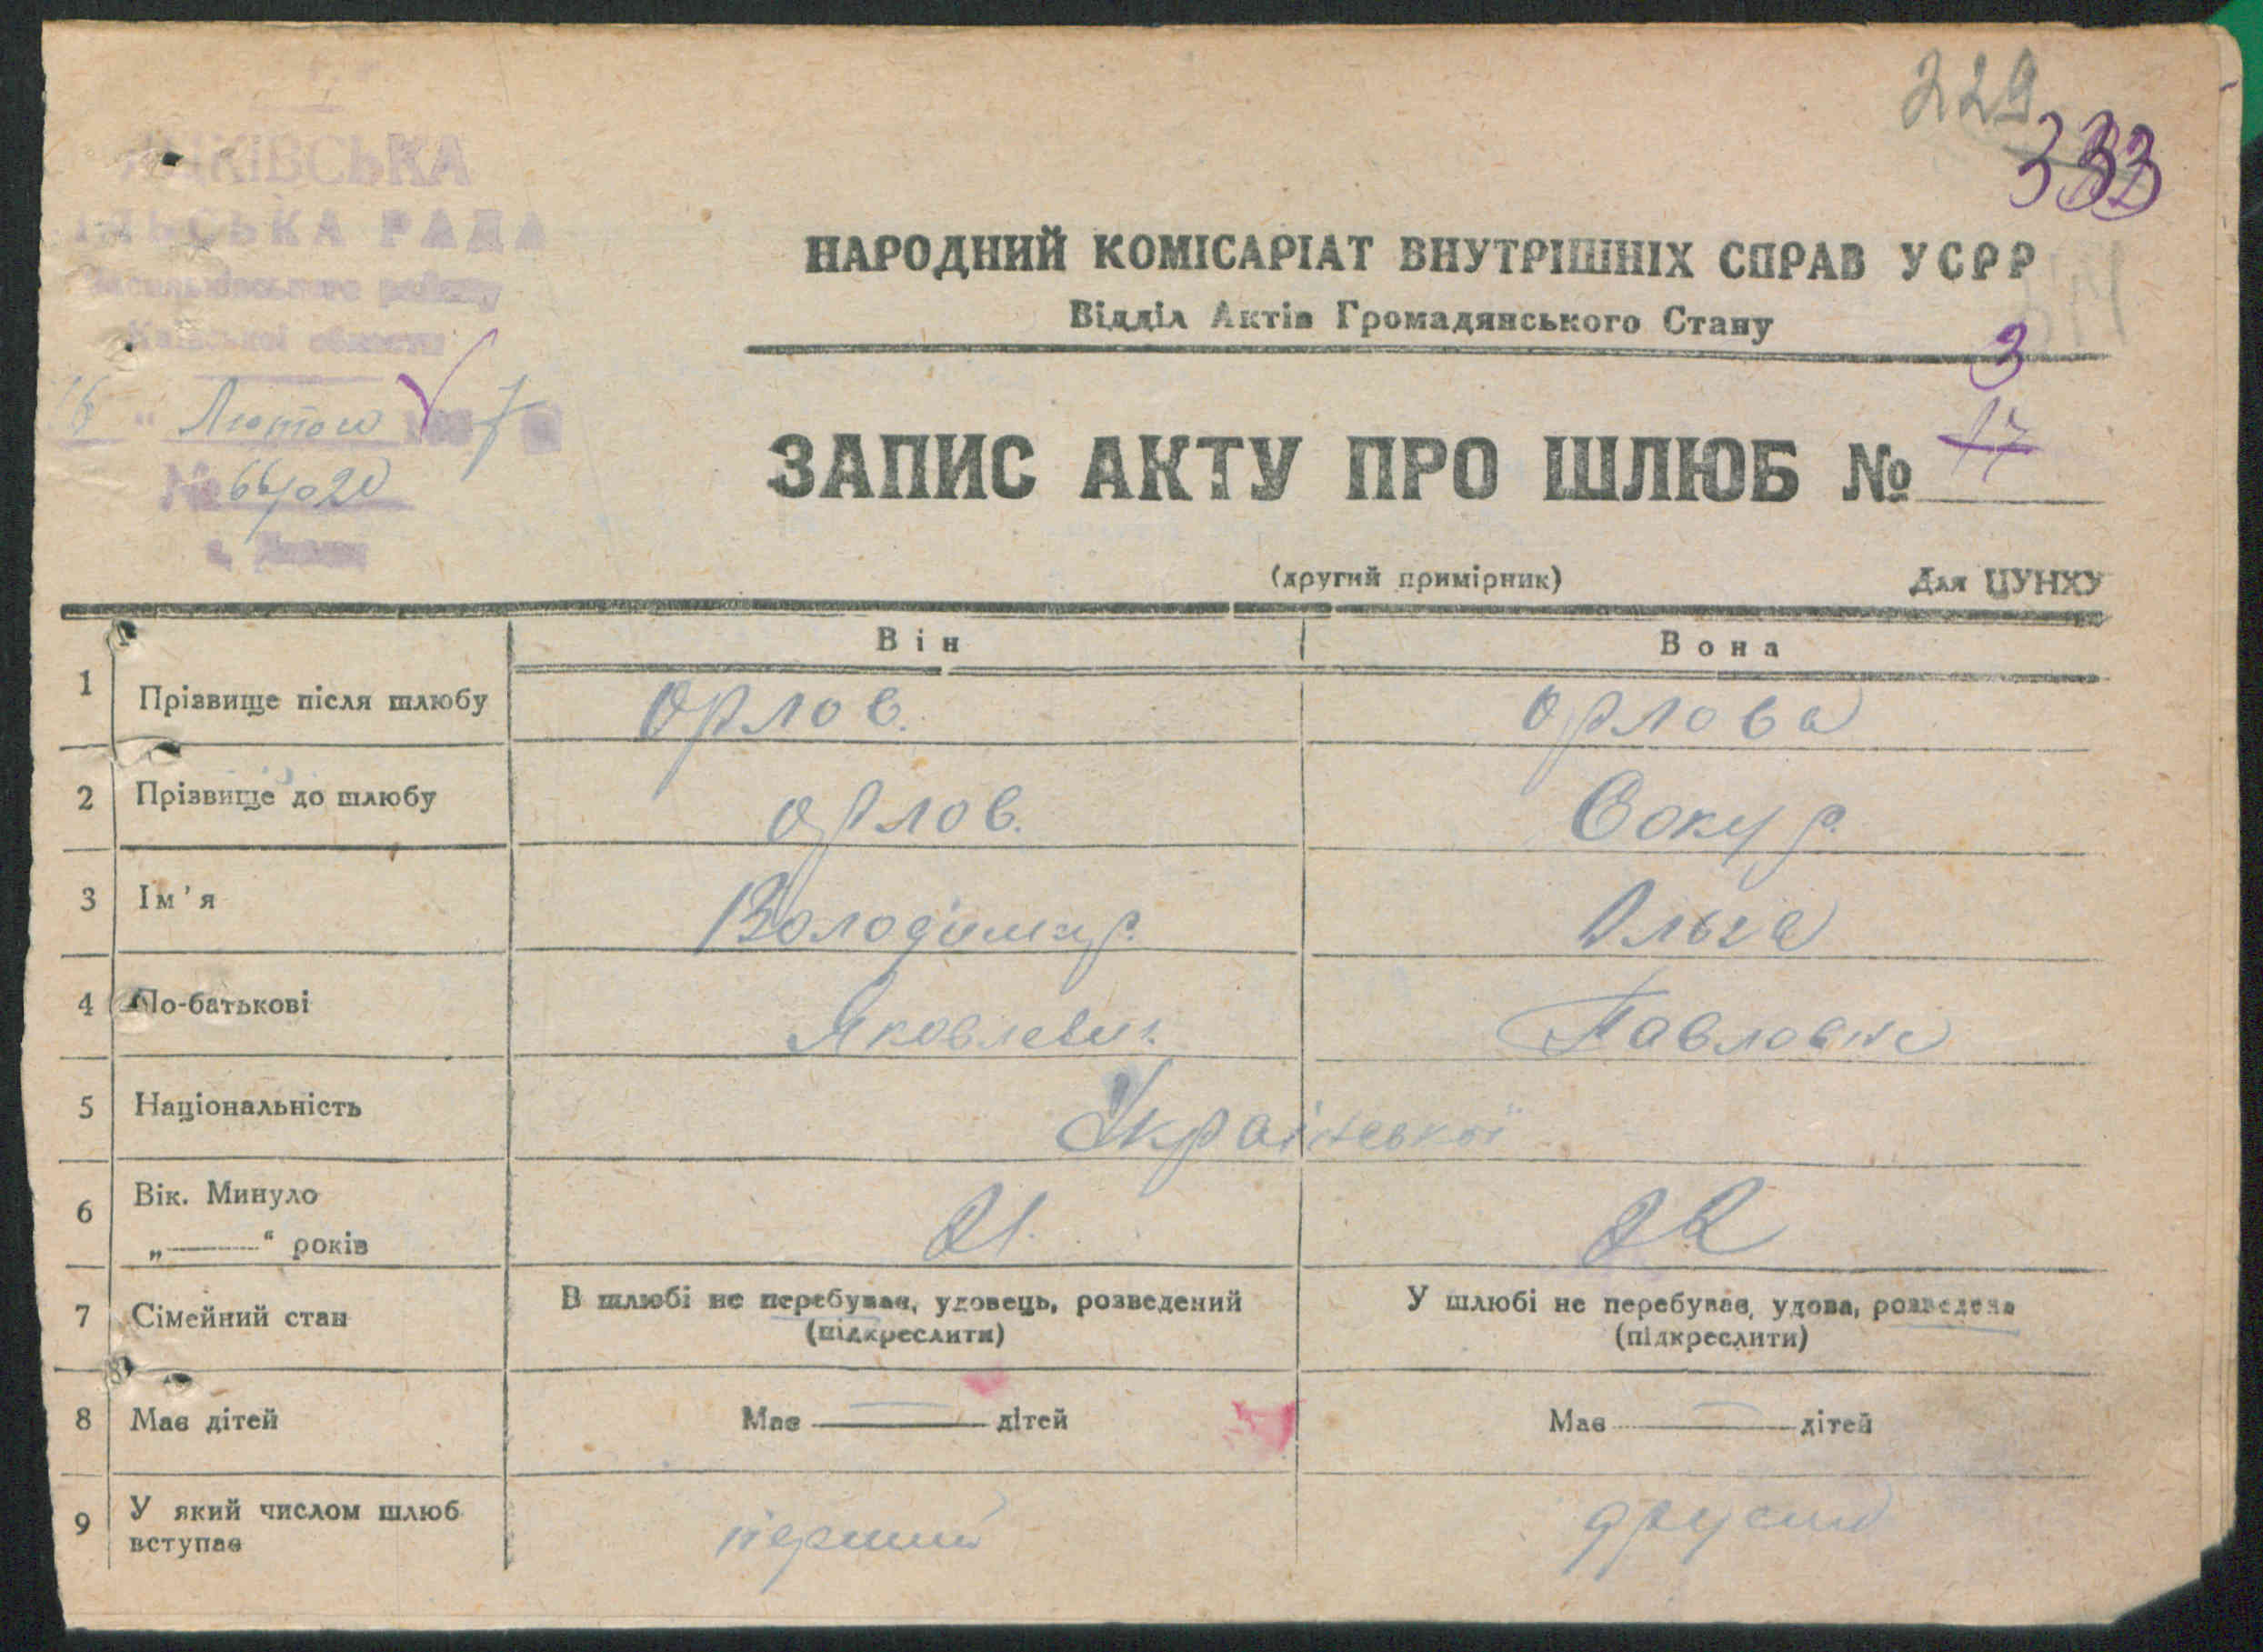 229
333
РАДА
Лютого 7
№ 66/020
НАРОДНИЙ КОМІСАРІАТ ВНУТРІШНІХ СПРАВ УСРР
Відділ Актів Громадянського Стану
3
ЗАПИС АКТУ ПРО ШЛЮБ № 17
(другий примірник) Для ЦУНХУ
Він Вона
1 Прізвище після шлюбу Орлов. Орлова
2 Прізвище до шлюбу Орлов. Сокур.
3 Ім'я Володимир. Ольга
4 По-батькові Яковлевич. Павловна
5 Національність Української
6 Вік. Минуло
„——“ років 21. 22
7 Сімейний стан В шлюбі не перебував, удовець, розведений У шлюбі не перебував, удова, розведена
(підкреслити) (підкреслити)
8 Має дітей Має — дітей Має — дітей
9 У який числом шлюб вступає перший другий